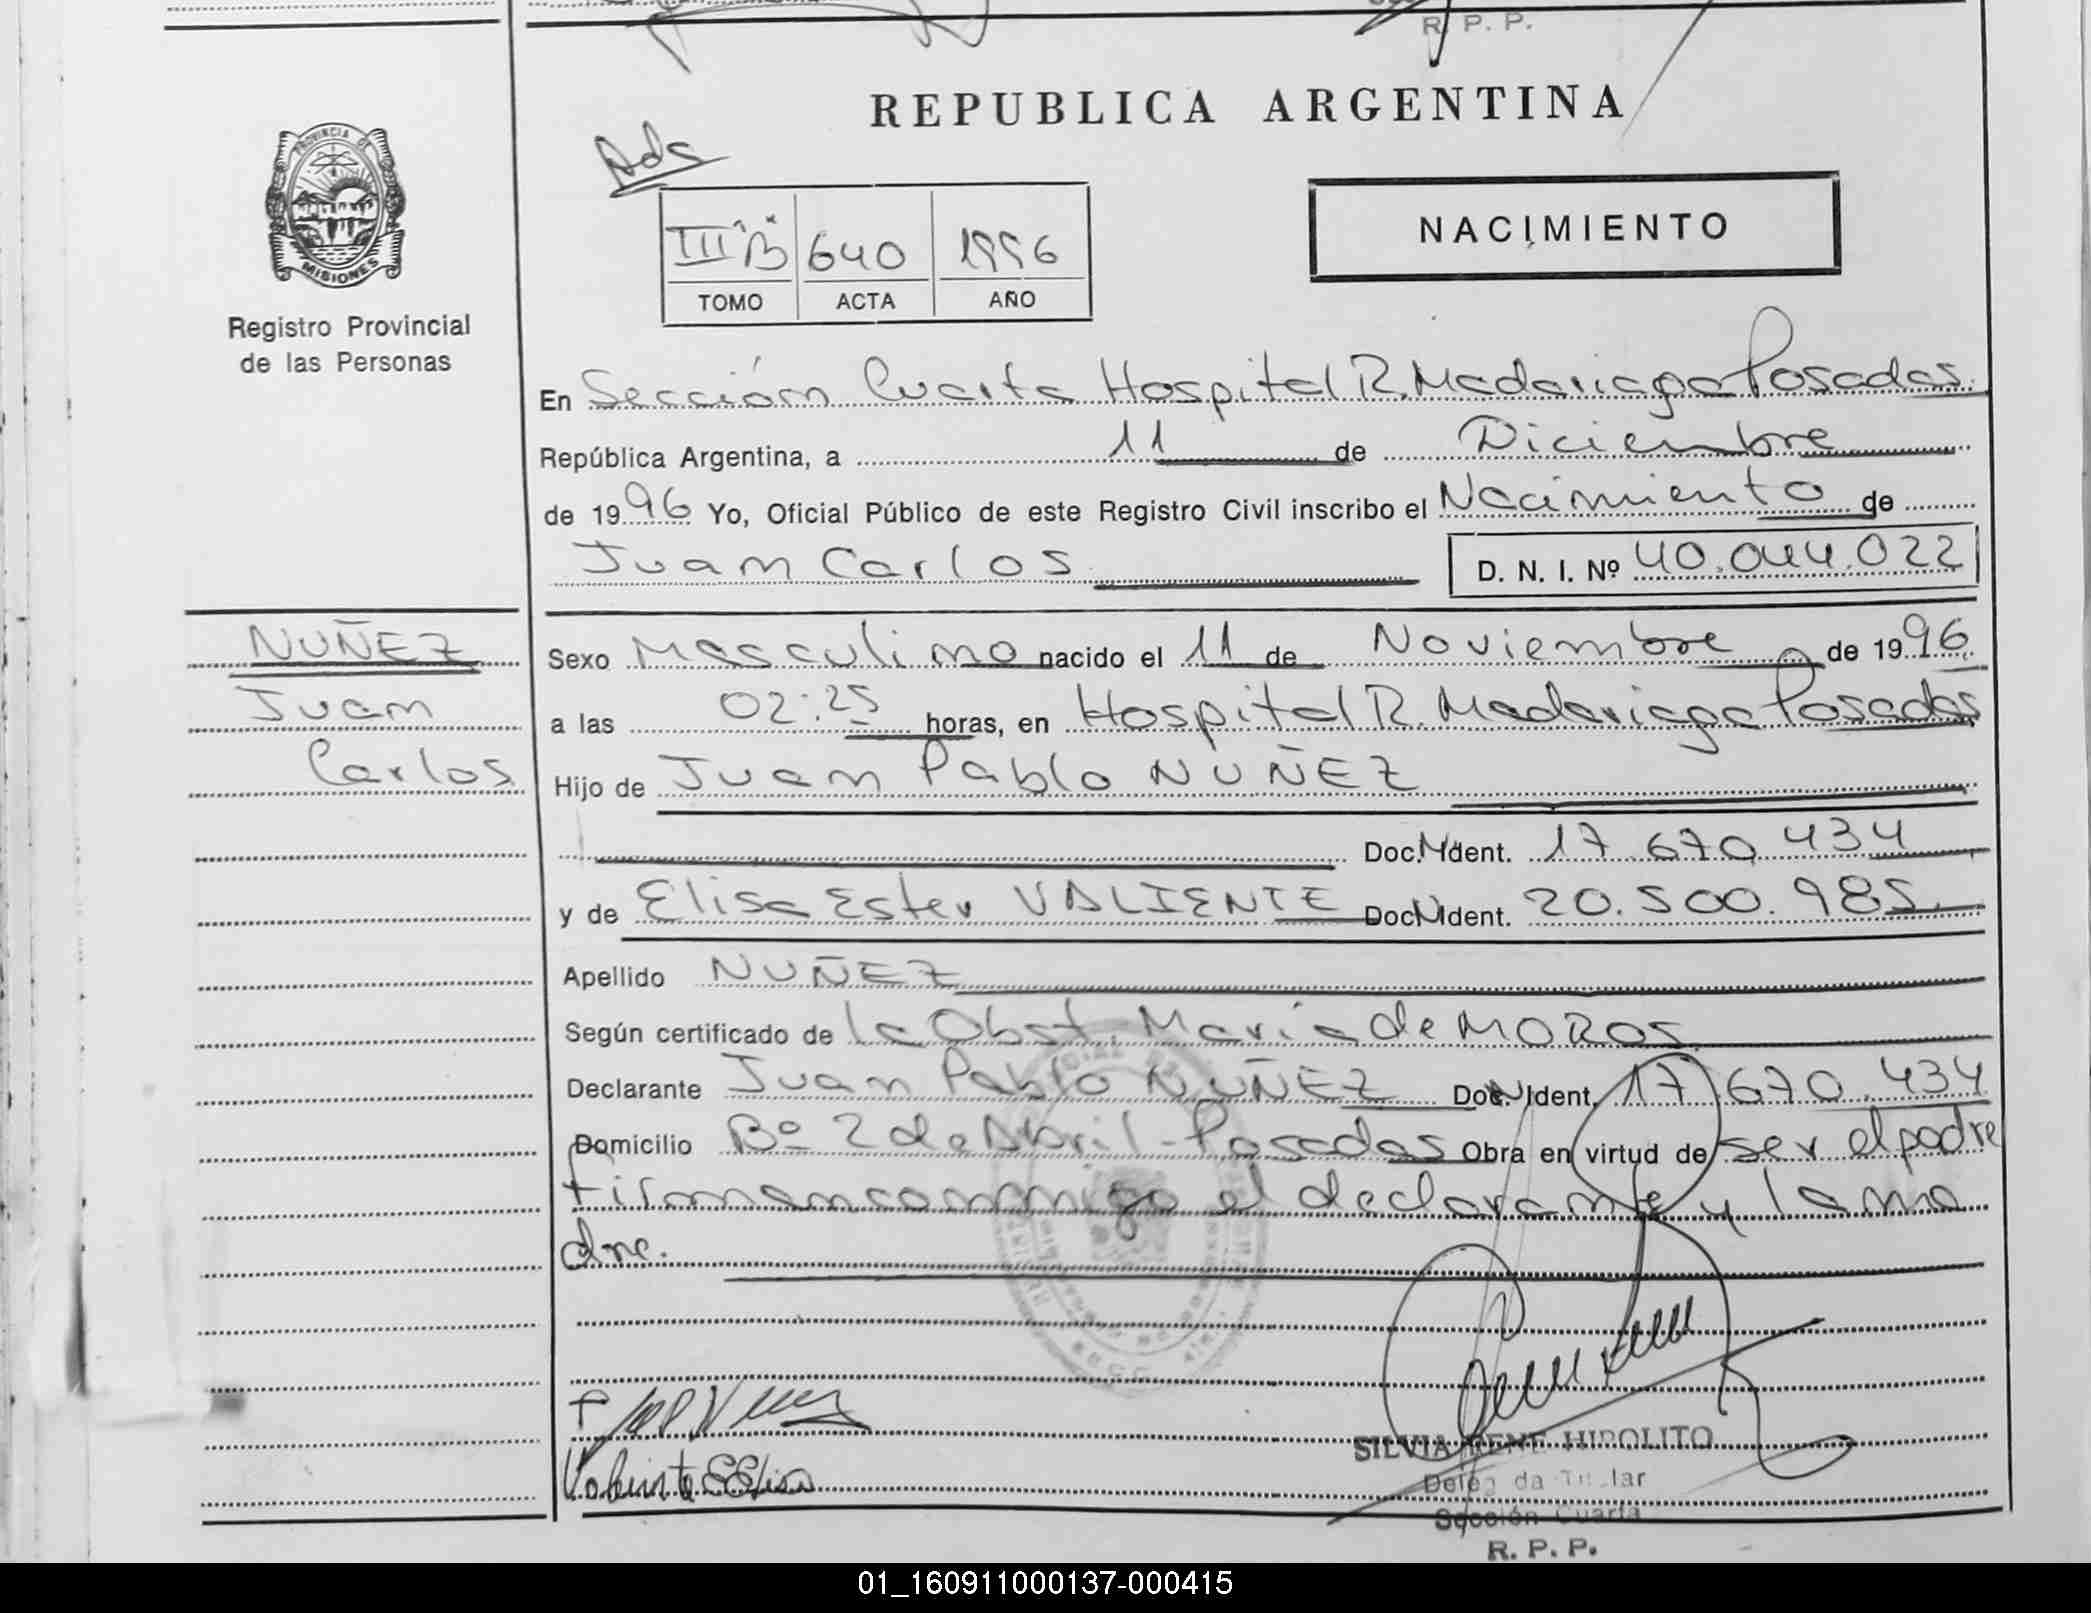 R. P. P.
REPUBLICA ARGENTINA
PROVINCIA DE
MISIONES
Registro Provincial
de las Personas
Ads
III "B" 640 1996
TOMO ACTA AÑO
NACIMIENTO
En Sección Cuarta Hospital R. Madariaga Posadas.
República Argentina, a 11 de Diciembre
de 1996 Yo, Oficial Público de este Registro Civil inscribo el Nacimiento de
Juan Carlos D. N. I. Nº 40.044.022
NUÑEZ
Juan
Carlos
Sexo Masculino nacido el 11 de Noviembre de 1996.
a las 02:25 horas, en Hospital R. Madariaga Posadas
Hijo de Juan Pablo NUÑEZ
Doc. Ident. 17.670.434
y de Elisa Ester VALIENTE Doc. Ident. 20.500.985.
Apellido NUÑEZ
Según certificado de la Obst. María de MOROS
Declarante Juan Pablo NUÑEZ Doc. Ident. 17.670.434
Domicilio Bº 2 de Abril - Posadas Obra en virtud de ser el padre
firman conmigo el declarante y la ma
dre.
SILVIA IRENE HIPOLITO
Delegada Titular
Sección Cuarta
R. P. P.
01_160911000137-000415